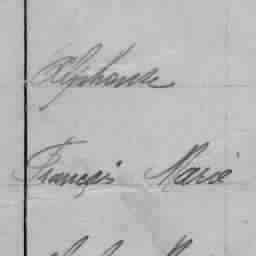 Alphonse
François Marie